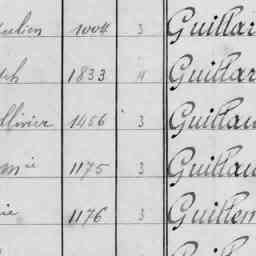 1004 3 Guillar
1833 4 Guillar
Ollivier 1456 3 Guillau
1175 3 Guillau
1176 3 Guillem